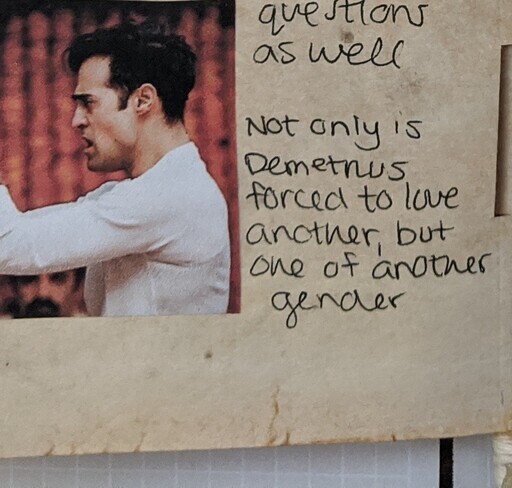 questions
as well
Not only is
Demetrius
forced to love
another, but
one of another
gender